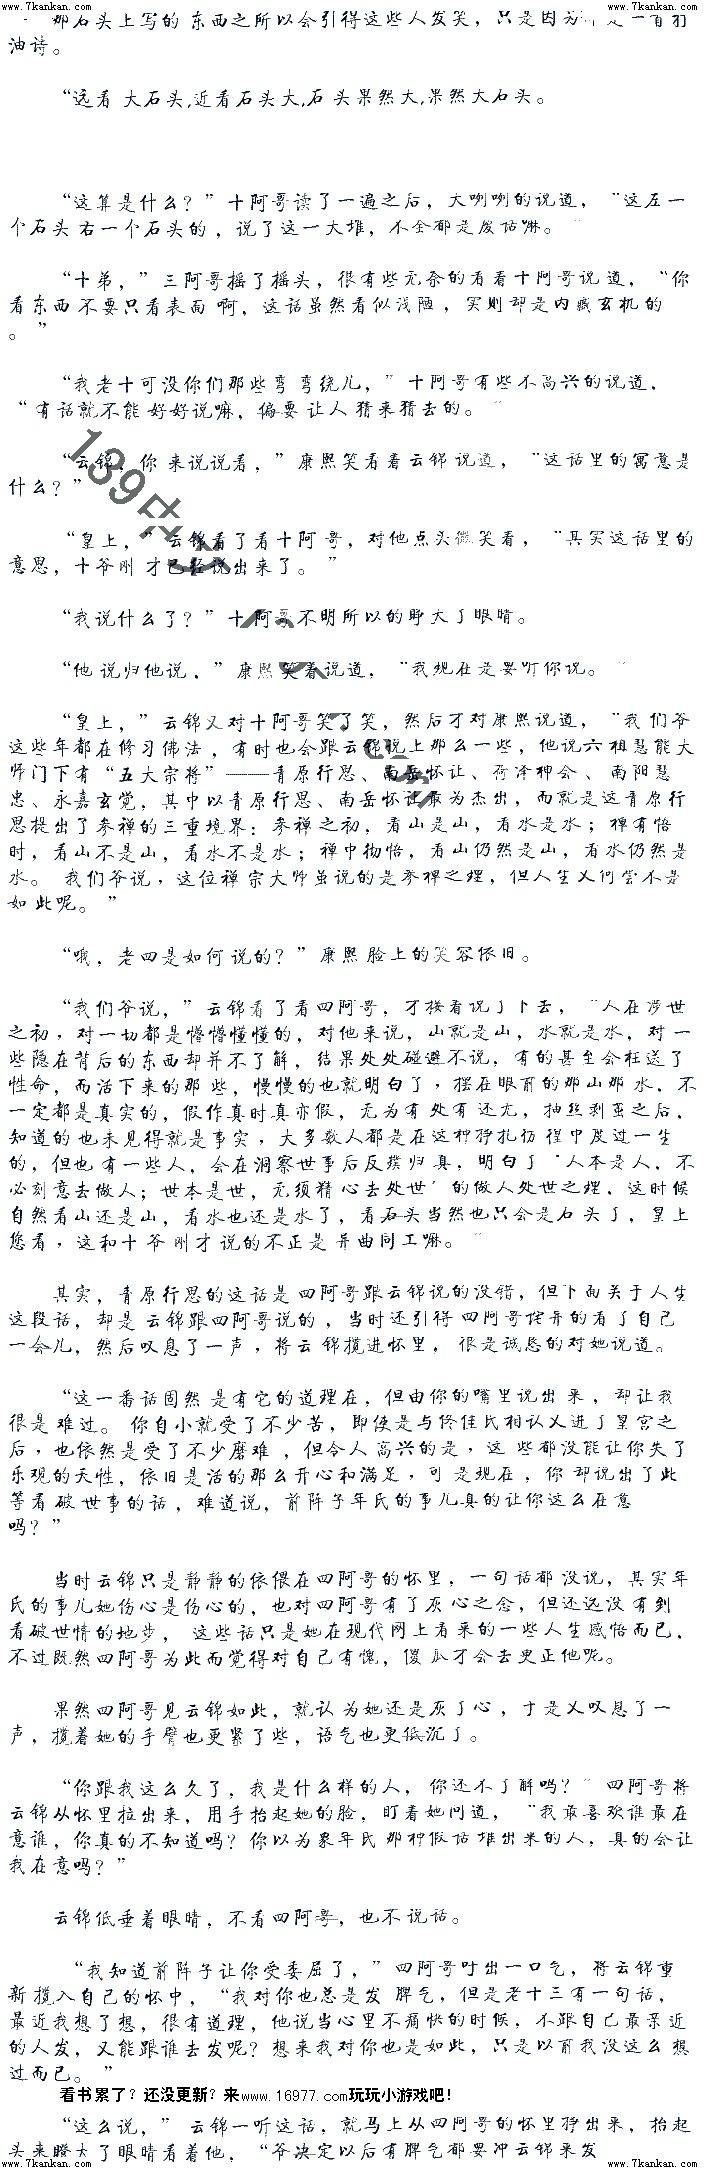 www.7kankan.com www.7kankan.com
那石头上写的东西之所以会引得这些人发笑，只是因为是一首打
油诗。
“远看大石头,近看石头大,石头果然大,果然大石头。
“这算是什么？”十阿哥读了一遍之后，大咧咧的说道，“这左一
个石头右一个石头的，说了这一大堆，不全都是废话嘛。”
“十弟，”三阿哥摇了摇头，很有些无奈的看看十阿哥说道，“你
看东西不要只看表面啊，这话虽然看似浅陋，实则却是内藏玄机的
。”
“我老十可没你们那些弯弯绕儿，”十阿哥有些不高兴的说道，
“有话就不能好好说嘛，偏要让人猜来猜去的。”
“云锦，你来说说看，”康熙笑看着云锦说道，“这话里的寓意是
什么？”
“皇上，”云锦看了看十阿哥，对他点头微笑着，“其实这话里的
意思，十爷刚才已经说出来了。”
“我说什么了？”十阿哥不明所以的睁大了眼睛。
“他说归他说，”康熙笑着说道，“我现在是要听你说。”
“皇上，”云锦又对十阿哥笑了笑，然后才对康熙说道，“我们爷
这些年都在修习佛法，有时也会跟云锦说上那么一些，他说六祖慧能大
师门下有“五大宗将”——青原行思、南岳怀让、荷泽神会、南阳慧
忠、永嘉玄觉，其中以青原行思、南岳怀让最为杰出，而就是这青原行
思提出了参禅的三重境界：参禅之初，看山是山，看水是水；禅有悟
时，看山不是山，看水不是水；禅中彻悟，看山仍然是山，看水仍然是
水。我们爷说，这位禅宗大师虽说的是参禅之理，但人生又何尝不是
如此呢。”
“哦，老四是如何说的？”康熙脸上的笑容依旧。
“我们爷说，”云锦看了看四阿哥，才接着说了下去，“人在涉世
之初，对一切都是懵懵懂懂的，对他来说，山就是山，水就是水，对一
些隐在背后的东西却并不了解，结果处处碰避不说，有的甚至会枉送了
性命，而活下来的那些，慢慢的也就明白了，摆在眼前的那山那水，不
一定都是真实的，假作真时真亦假，无为有处有还无，抽丝剥茧之后，
知道的也未见得就是事实，大多数人都是在这种挣扎彷徨中度过一生
的，但也有一些人，会在洞察世事后反璞归真，明白了‘人本是人，不
必刻意去做人；世本是世，无须精心去处世’的做人处世之理，这时候
自然看山还是山，看水也还是水了，看石头当然也只会是石头了，皇上
您看，这和十爷刚才说的不正是异曲同工嘛。”
其实，青原行思的这话是四阿哥跟云锦说的没错，但下面关于人生
这段话，却是云锦跟四阿哥说的，当时还引得四阿哥诧异的看了自己
一会儿，然后叹息了一声，将云锦揽进怀里，很是诚恳的对她说道。
“这一番话固然是有它的道理在，但由你的嘴里说出来，却让我
很是难过。你自小就受了不少苦，即使是与佟佳氏相认又进了皇宫之
后，也依然是受了不少磨难，但令人高兴的是，这些都没能让你失了
乐观的天性，依旧是活的那么开心和满足，可是现在，你却说出了此
等看破世事的话，难道说，前阵子年氏的事儿真的让你这么在意
吗？”
当时云锦只是静静的依偎在四阿哥的怀里，一句话都没说，其实年
氏的事儿她伤心是伤心的，也对四阿哥有了灰心之念，但还远没有到
看破世情的地步，这些话只是她在现代网上看来的一些人生感悟而已，
不过既然四阿哥为此而觉得对自己有愧，傻瓜才会去更正他呢。
果然四阿哥见云锦如此，就认为她还是灰了心，于是又叹息了一
声，揽着她的手臂也更紧了些，语气也更低沉了。
“你跟我这么久了，我是什么样的人，你还不了解吗？”四阿哥将
云锦从怀里拉出来，用手抬起她的脸，盯着她问道，“我最喜欢谁最在
意谁，你真的不知道吗？你以为象年氏那种假话堆出来的人，真的会让
我在意吗？”
云锦低垂着眼睛，不看四阿哥，也不说话。
“我知道前阵子让你受委屈了，”四阿哥吁出一口气，将云锦重
新揽入自己的怀中，“我对你也总是发脾气，但是老十三有一句话，
最近我想了想，很有道理，他说当心里不痛快的时候，不跟自己最亲近
的人发，又能跟谁去发呢？想来我对你也是如此，只是以前我没这么想
过而已。”
看书累了？还没更新？来www.16977.com玩玩小游戏吧！
“这么说，”云锦一听这话，就马上从四阿哥的怀里挣出来，抬起
头来瞪大了眼睛看着他，“爷决定以后有脾气都要冲云锦来发
www.7kankan.com www.7kankan.com